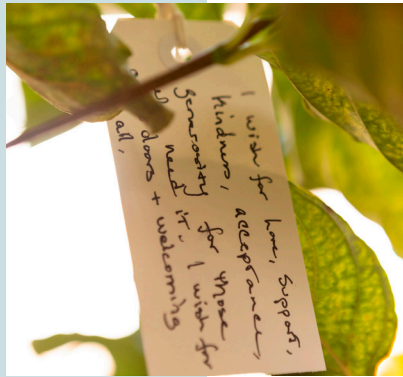 I wish for love, support,
kindness, acceptance,
generosity for those
need it. I wish for
doors + welcoming
all,